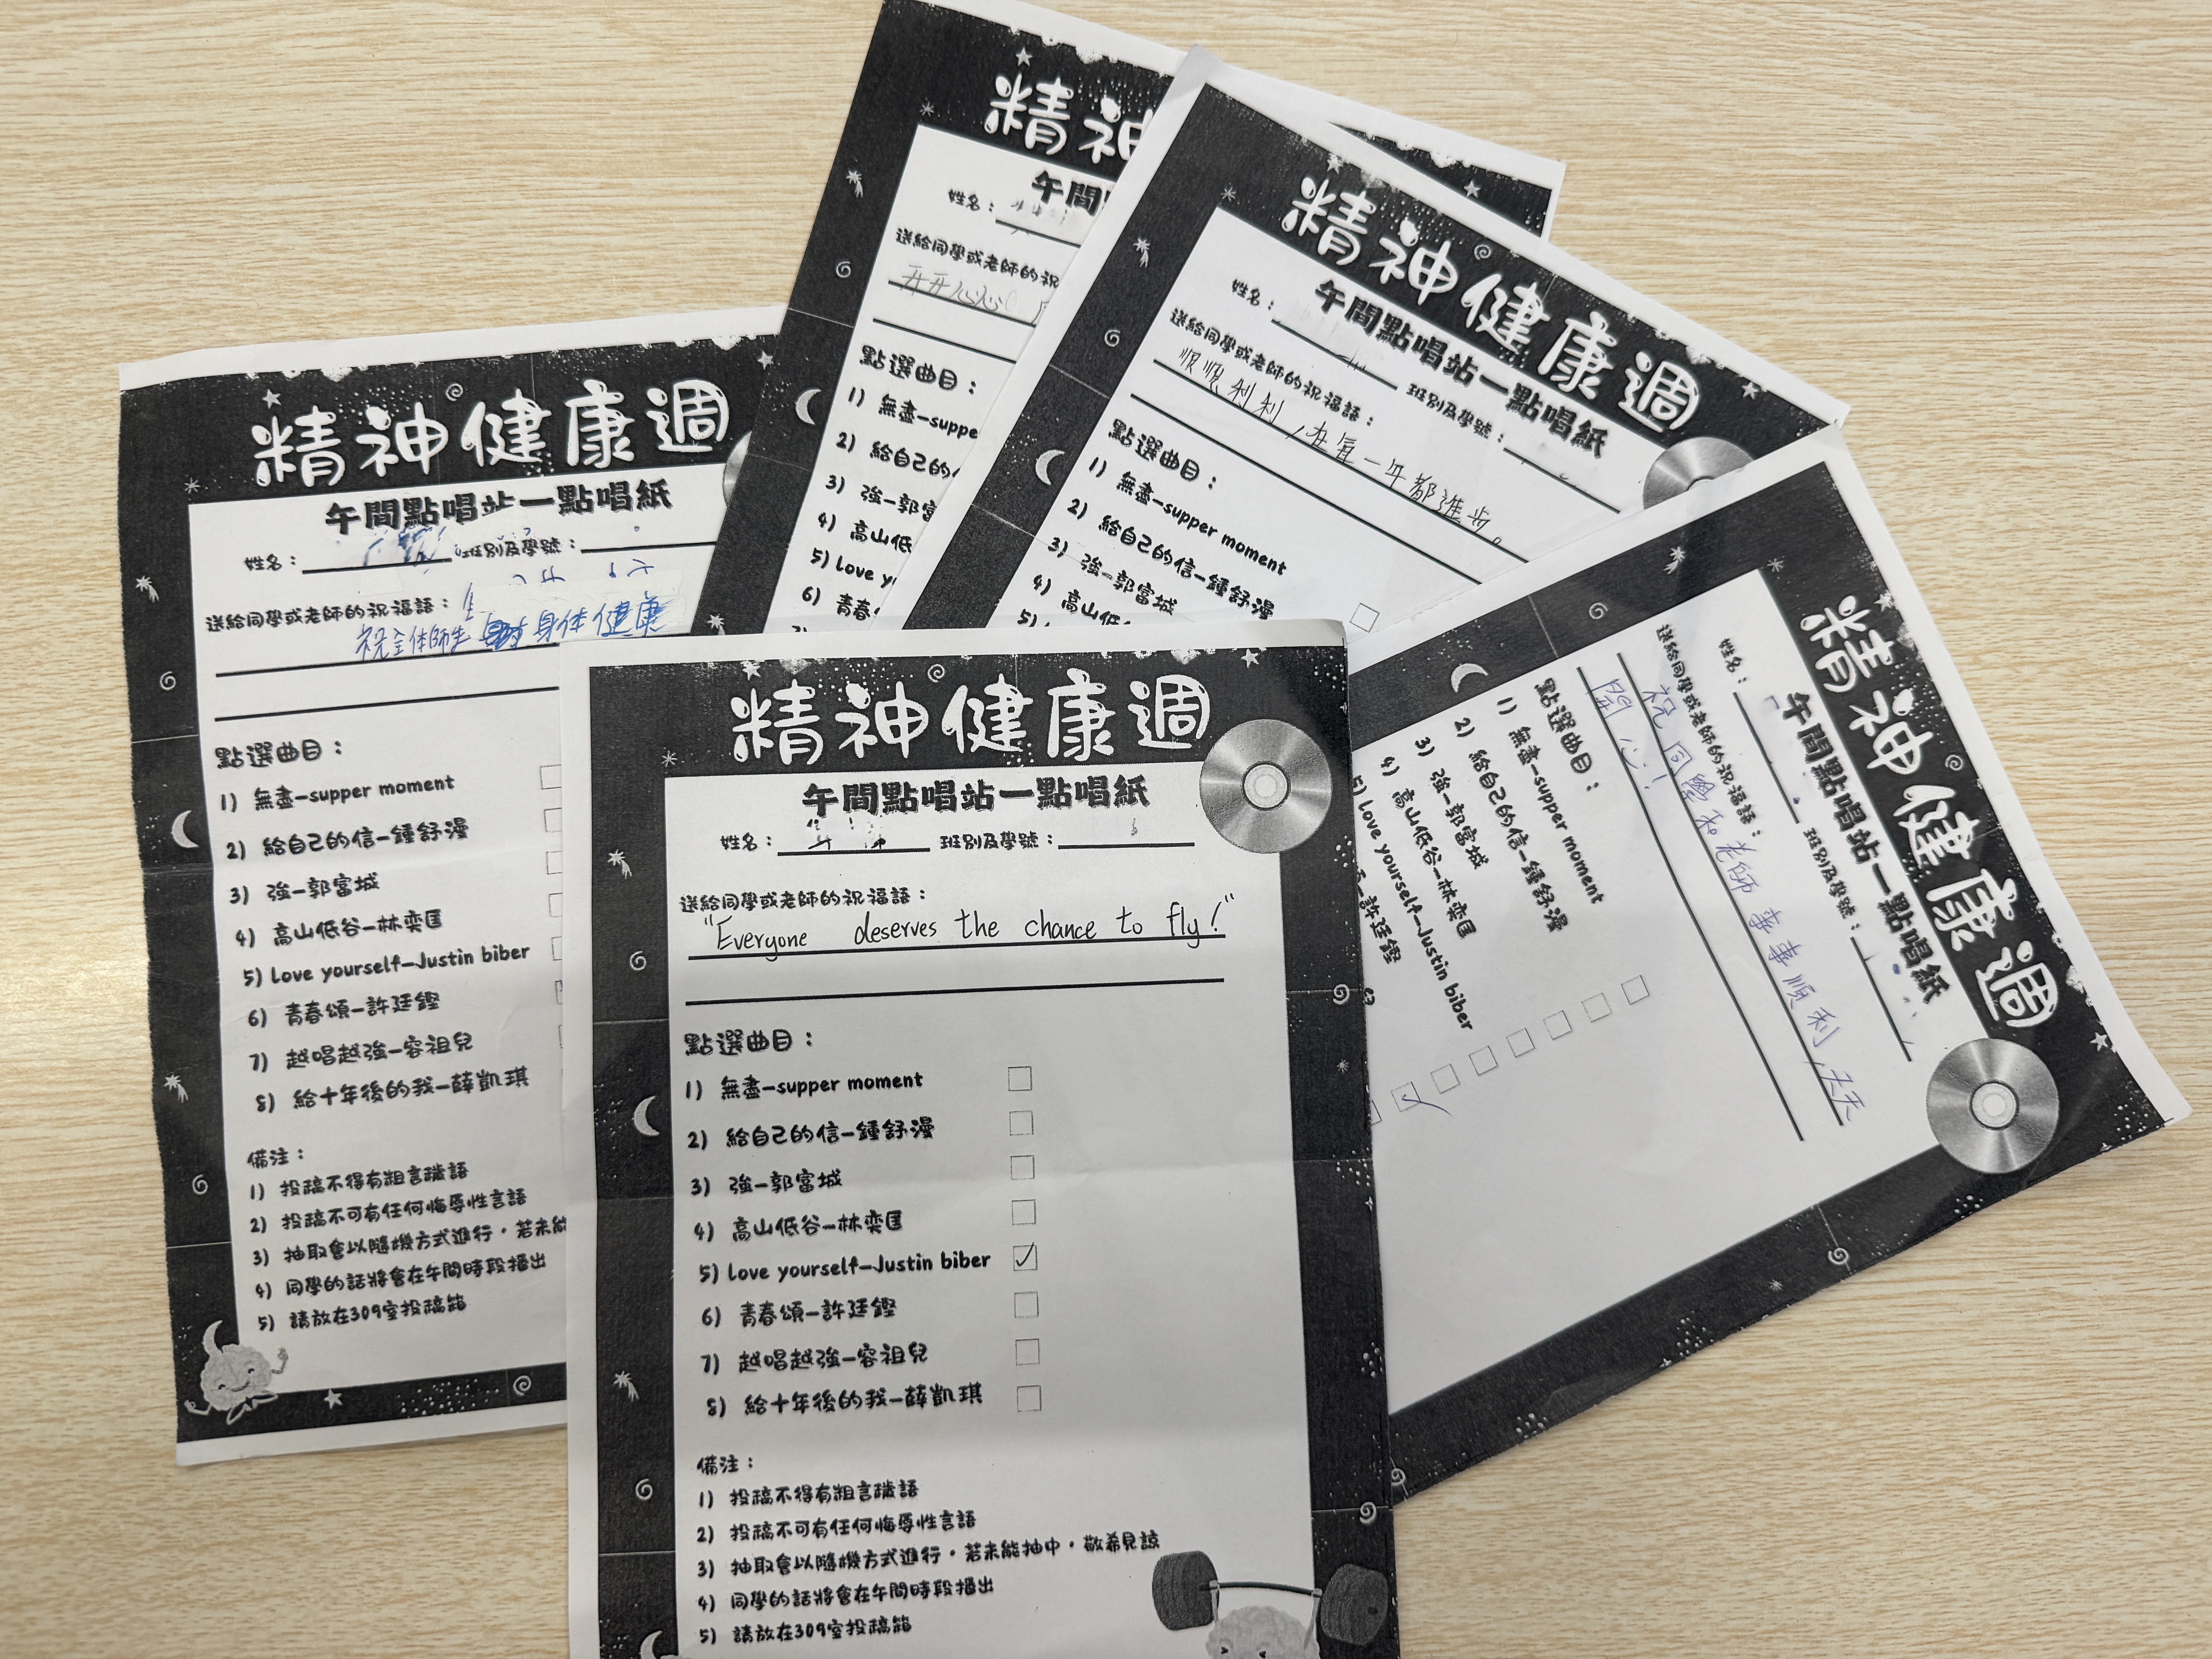 精神健康週
午間點唱站—點唱紙
姓名：
班別及學號：
送給同學或老師的祝福語：
祝全体師生 身体健康
點選曲目：
1) 無盡—supper moment
2) 給自己的信—鍾舒漫
3) 強—郭富城
4) 高山低谷—林奕匡
5) Love yourself—Justin biber
6) 青春頌—許廷鏗
7) 越唱越強—容祖兒
8) 給十年後的我—薛凱琪
備注：
1) 投稿不得有粗言穢語
2) 投稿不可有任何悔辱性言語
3) 抽取會以隨機方式進行，若未能
4) 同學的話將會在午間時段播出
5) 請放在309室投稿箱
精神
午間
姓名：
送給同學或老師的祝
開開心心
點選曲目：
1) 無盡—suppe
2) 給自己的
3) 強—郭富
4) 高山低
5) Love y
6) 青春
精神健康週
午間點唱站—點唱紙
姓名： 班別及學號：
送給同學或老師的祝福語：
順順利利，在每一年都進步。
點選曲目：
1) 無盡—supper moment
2) 給自己的信—鍾舒漫
3) 強—郭富城
4) 高山低
5) L
精神健康週
午間點唱站—點唱紙
姓名： 班別及學號：
送給同學或老師的祝福語：
祝同學和老師 順利，天天
開心！
點選曲目：
1) 無盡—supper moment
2) 給自己的信—鍾舒漫
3) 強—郭富城
4) 高山低谷—林奕匡
5) Love yourself—Justin biber
許廷鏗
精神健康週
午間點唱站—點唱紙
姓名： 班別及學號：
送給同學或老師的祝福語：
"Everyone deserves the chance to fly!"
點選曲目：
1) 無盡—supper moment
2) 給自己的信—鍾舒漫
3) 強—郭富城
4) 高山低谷—林奕匡
5) Love yourself—Justin biber
6) 青春頌—許廷鏗
7) 越唱越強—容祖兒
8) 給十年後的我—薛凱琪
備注：
1) 投稿不得有粗言穢語
2) 投稿不可有任何悔辱性言語
3) 抽取會以隨機方式進行，若未能抽中，敬希見諒
4) 同學的話將會在午間時段播出
5) 請放在309室投稿箱